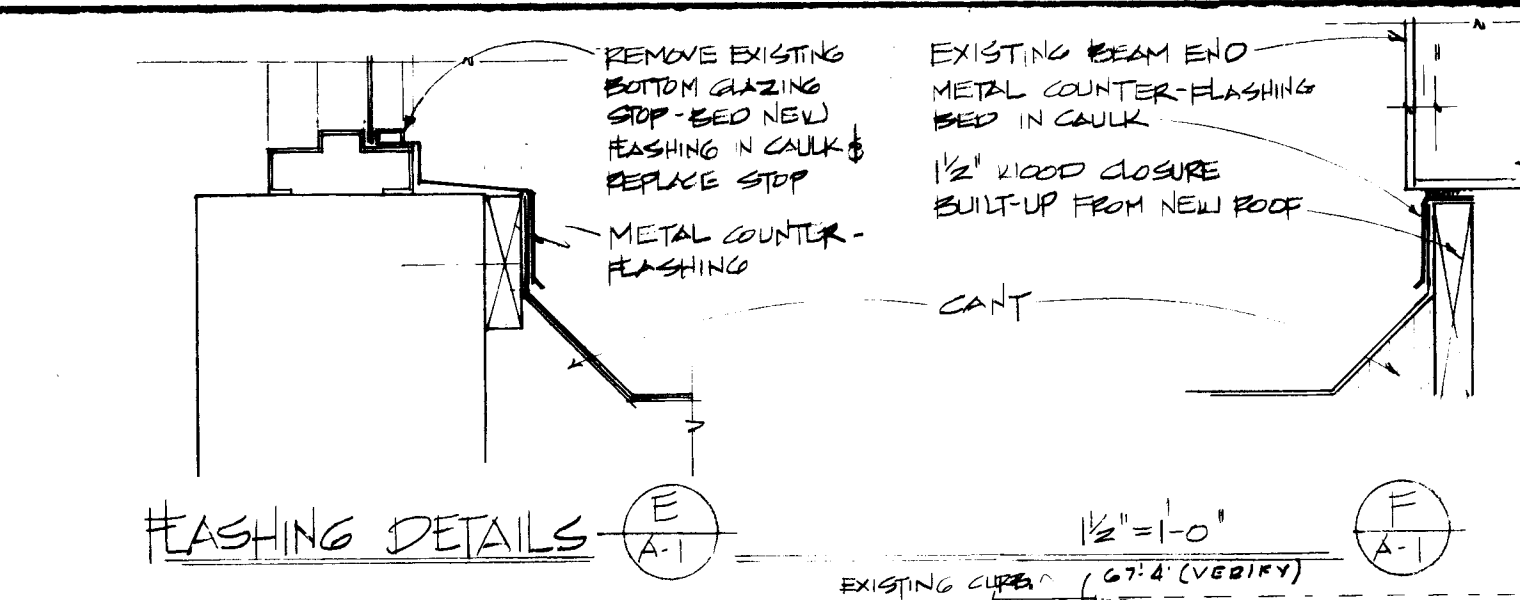 REMOVE EXISTING
BOTTOM GLAZING
STOP - BED NEW
FLASHING IN CAULK &
REPLACE STOP
METAL COUNTER-
FLASHING
EXISTING BEAM END
METAL COUNTER-FLASHING
BED IN CAULK
1½" WOOD CLOSURE
BUILT-UP FROM NEW ROOF
CANT
FLASHING DETAILS
E
A-1
1½"=1'-0"
F
A-1
EXISTING CURB
67'-4" (VERIFY)